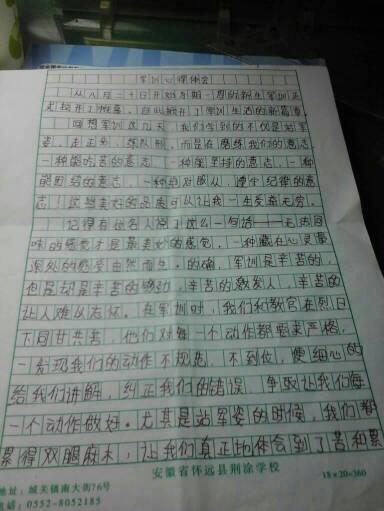 军训心得体会
从八月二十日开始为期一周的新生军训正
式拉开了帷幕，也掀开了军训生活的新篇章
回想军训这几天，我们学到的不仅是站军
姿，走正步，练队形，而是在磨练我们的意志
一种能吃苦的意志，一种能坚持的意志，一种
能团结的意志，一种绝对服从，遵守纪律的意
志，这些美好的品质可以让我一生受益无穷。
记得有位名人说了这么一句话——无法回
味的感觉才是最美妙的感觉，一种藏在心灵最
深处的感受由然而生。的确，军训是辛苦的，
也是却是辛苦的感动，辛苦的教发人，辛苦的
让人难以忘怀。在军训时，我们和教官在烈日
下同甘共苦，他们对每一个动作都要求严格，
一发现我们的动作不规范，不到位，便细心的
给我们讲解，纠正我们的错误，争取让我们每
一个动作做好。尤其是站军姿的时候，我们都
累得双腿麻木，让我们真正地体会到了苦和累
安徽省怀远县荆涂学校
18×20=360
地址：城关镇南大街76号
电话：0552-8052185